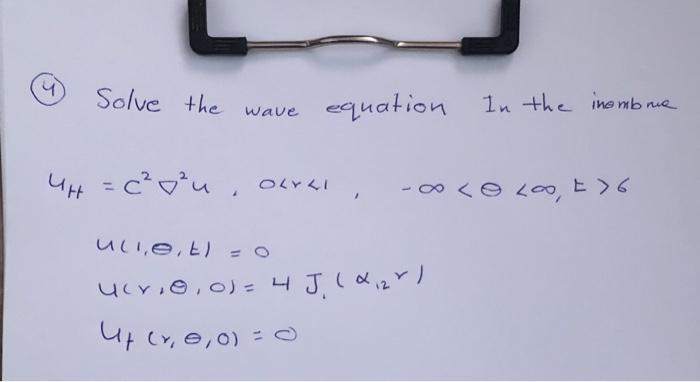 ④ Solve the wave equation In the inembrne
u_tt = c² ∇²u , 0<r<1 , -∞ < θ < ∞, t > 6
u(1,θ,t) = 0
u(r,θ,0) = 4 J₁(α₁₂r)
u_t(r,θ,0) = 0